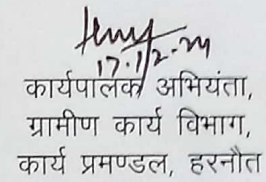 17.1/2.24
कार्यपालक अभियंता,
ग्रामीण कार्य विभाग,
कार्य प्रमण्डल, हरनौत